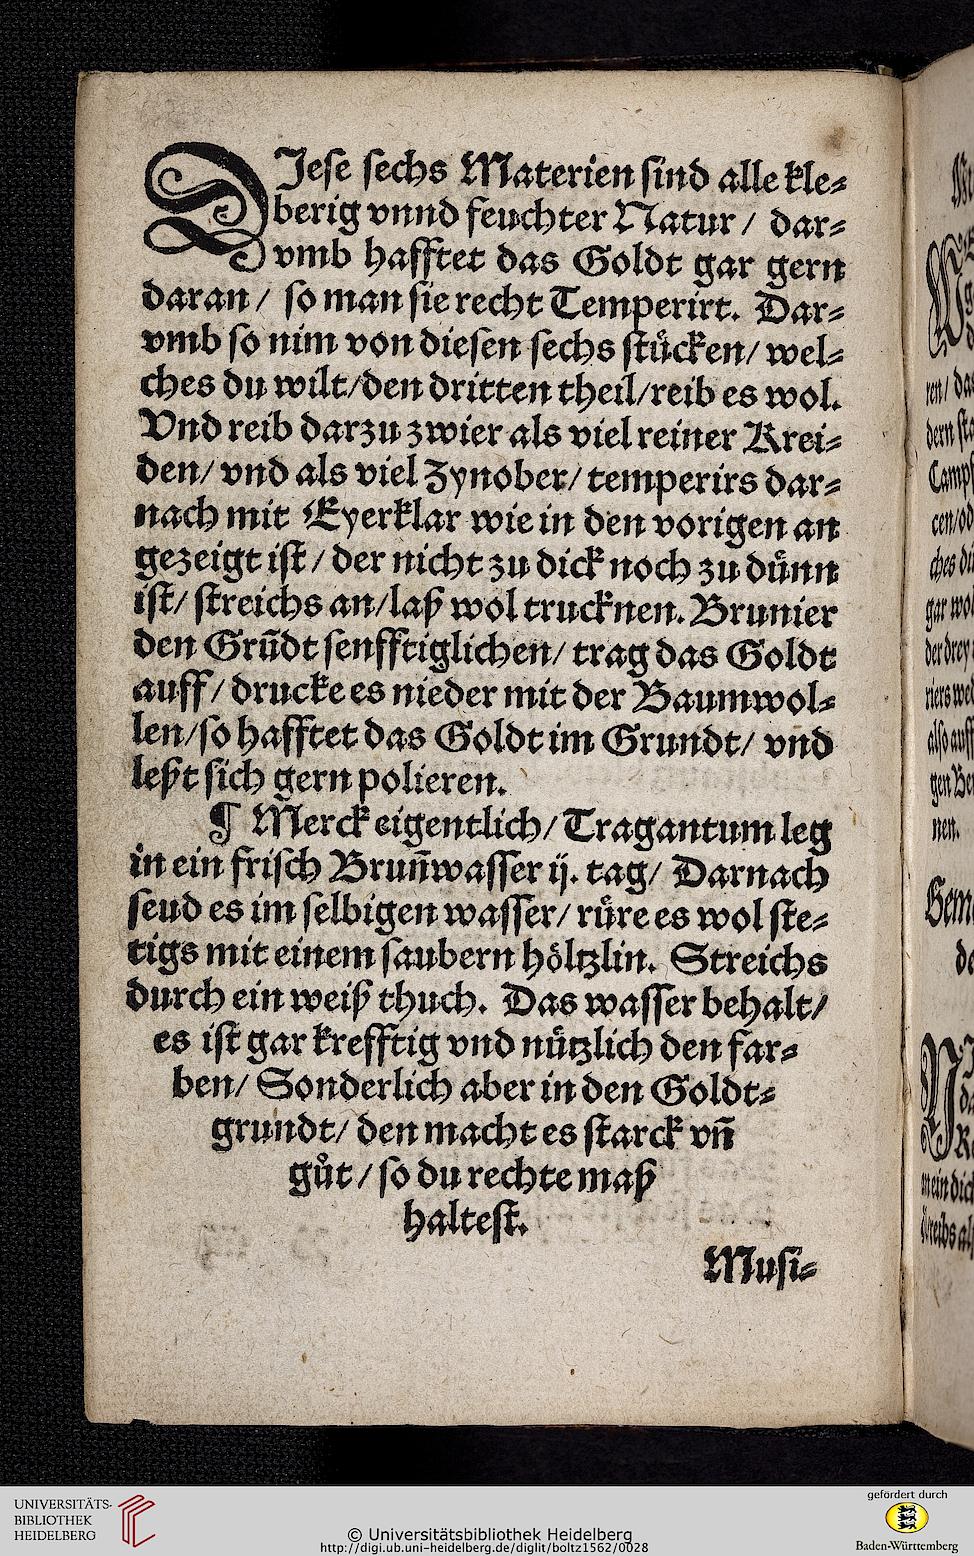 DIese sechs Materien sind alle kle⸗
berig vnnd feuchter Natur / dar⸗
vmb hafftet das Goldt gar gern
daran / so man sie recht Temperirt. Dar⸗
vmb so nim von diesen sechs stücken / wel⸗
ches du wilt / den dritten theil / reib es wol.
Vnd reib darzu zwier als viel reiner Krei⸗
den / vnd als viel Zynober / temperirs dar⸗
nach mit Eyerklar wie in den vorigen an
gezeigt ist / der nicht zu dick noch zu dünn
ist / streichs an / laß wol trucknen. Brunier
den Grũdt senfftiglichen / trag das Goldt
auff / drucke es nieder mit der Baumwol⸗
len / so hafftet das Goldt im Grundt / vnd
leßt sich gern polieren.
¶ Merck eigentlich / Tragantum leg
in ein frisch Brun̄wasser ij. tag / Darnach
seud es im selbigen wasser / rüre es wol ste⸗
tigs mit einem saubern höltzlin. Streichs
durch ein weiß thuch. Das wasser behalt /
es ist gar krefftig vnd nützlich den far⸗
ben / Sonderlich aber in den Goldt⸗
grundt / den macht es starck vn̄
gůt / so du rechte maß
haltest.
Musi⸗
ren / das
dern
cen / od
ches dü
gar wol
der drey
also auff
nen.
UNIVERSITÄTS-
BIBLIOTHEK
HEIDELBERG
© Universitätsbibliothek Heidelberg
http://digi.ub.uni-heidelberg.de/diglit/boltz1562/0028
gefördert durch
Baden-Württemberg